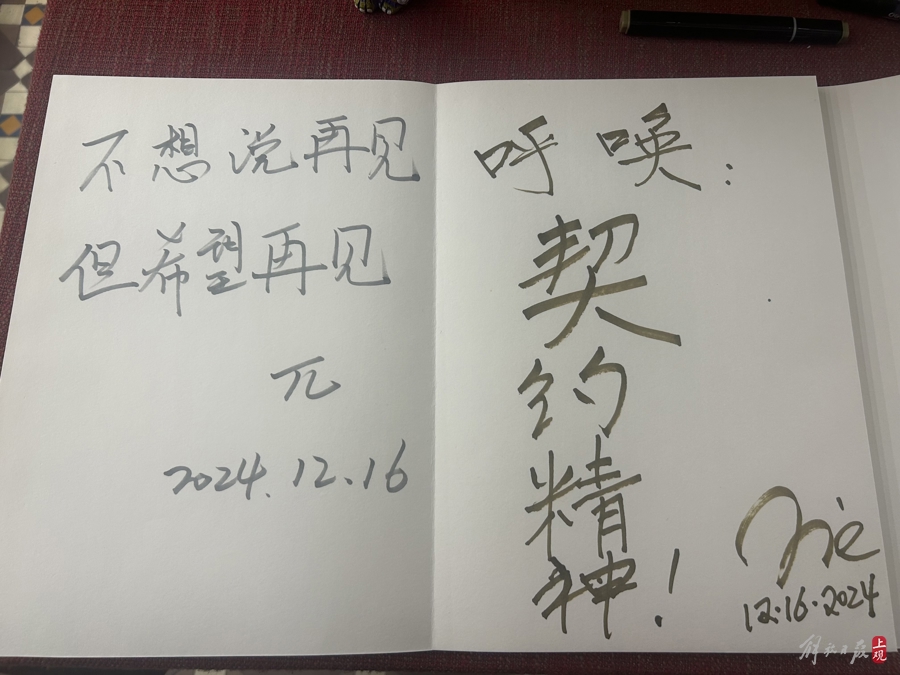 不想说再见
但希望再见
π
2024.12.16
呼唤:
契
约
精
神!
12.16.2024
解放日报
上观